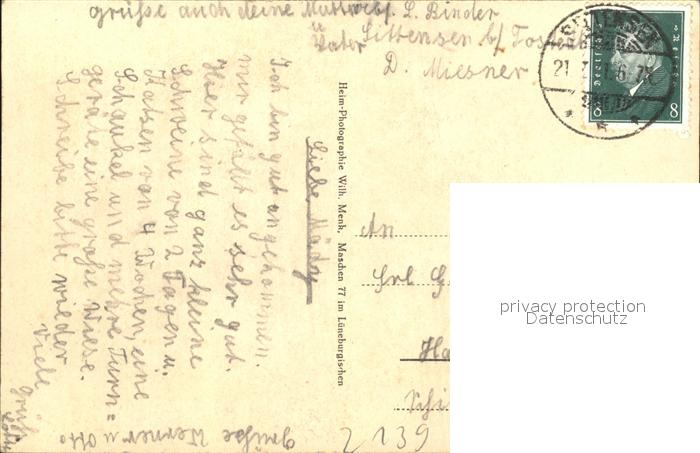 grüße auch deine Mutter
u Vater
L. Binder
Sittensen b/ Tostedt
D. Miesner
SITTENSEN
21
Deutsches Reich
8 8
Liebe
Ich bin gut angekommen.
mir gefällt es sehr gut.
Hier sind ganz kleine
Schweine von 2 Tagen u.
Katzen von 4 Wochen, eine
Schaukel und mehre Turn=
geräte eine große Wiese.
Schreibe bitte wieder
Viele
Grüße
grüße Werner u Otto
Heim-Photographie Wilh. Menk, Maschen 77 im Lüneburgischen
An
Frl G
Ha
Schi
2139
privacy protection
Datenschutz